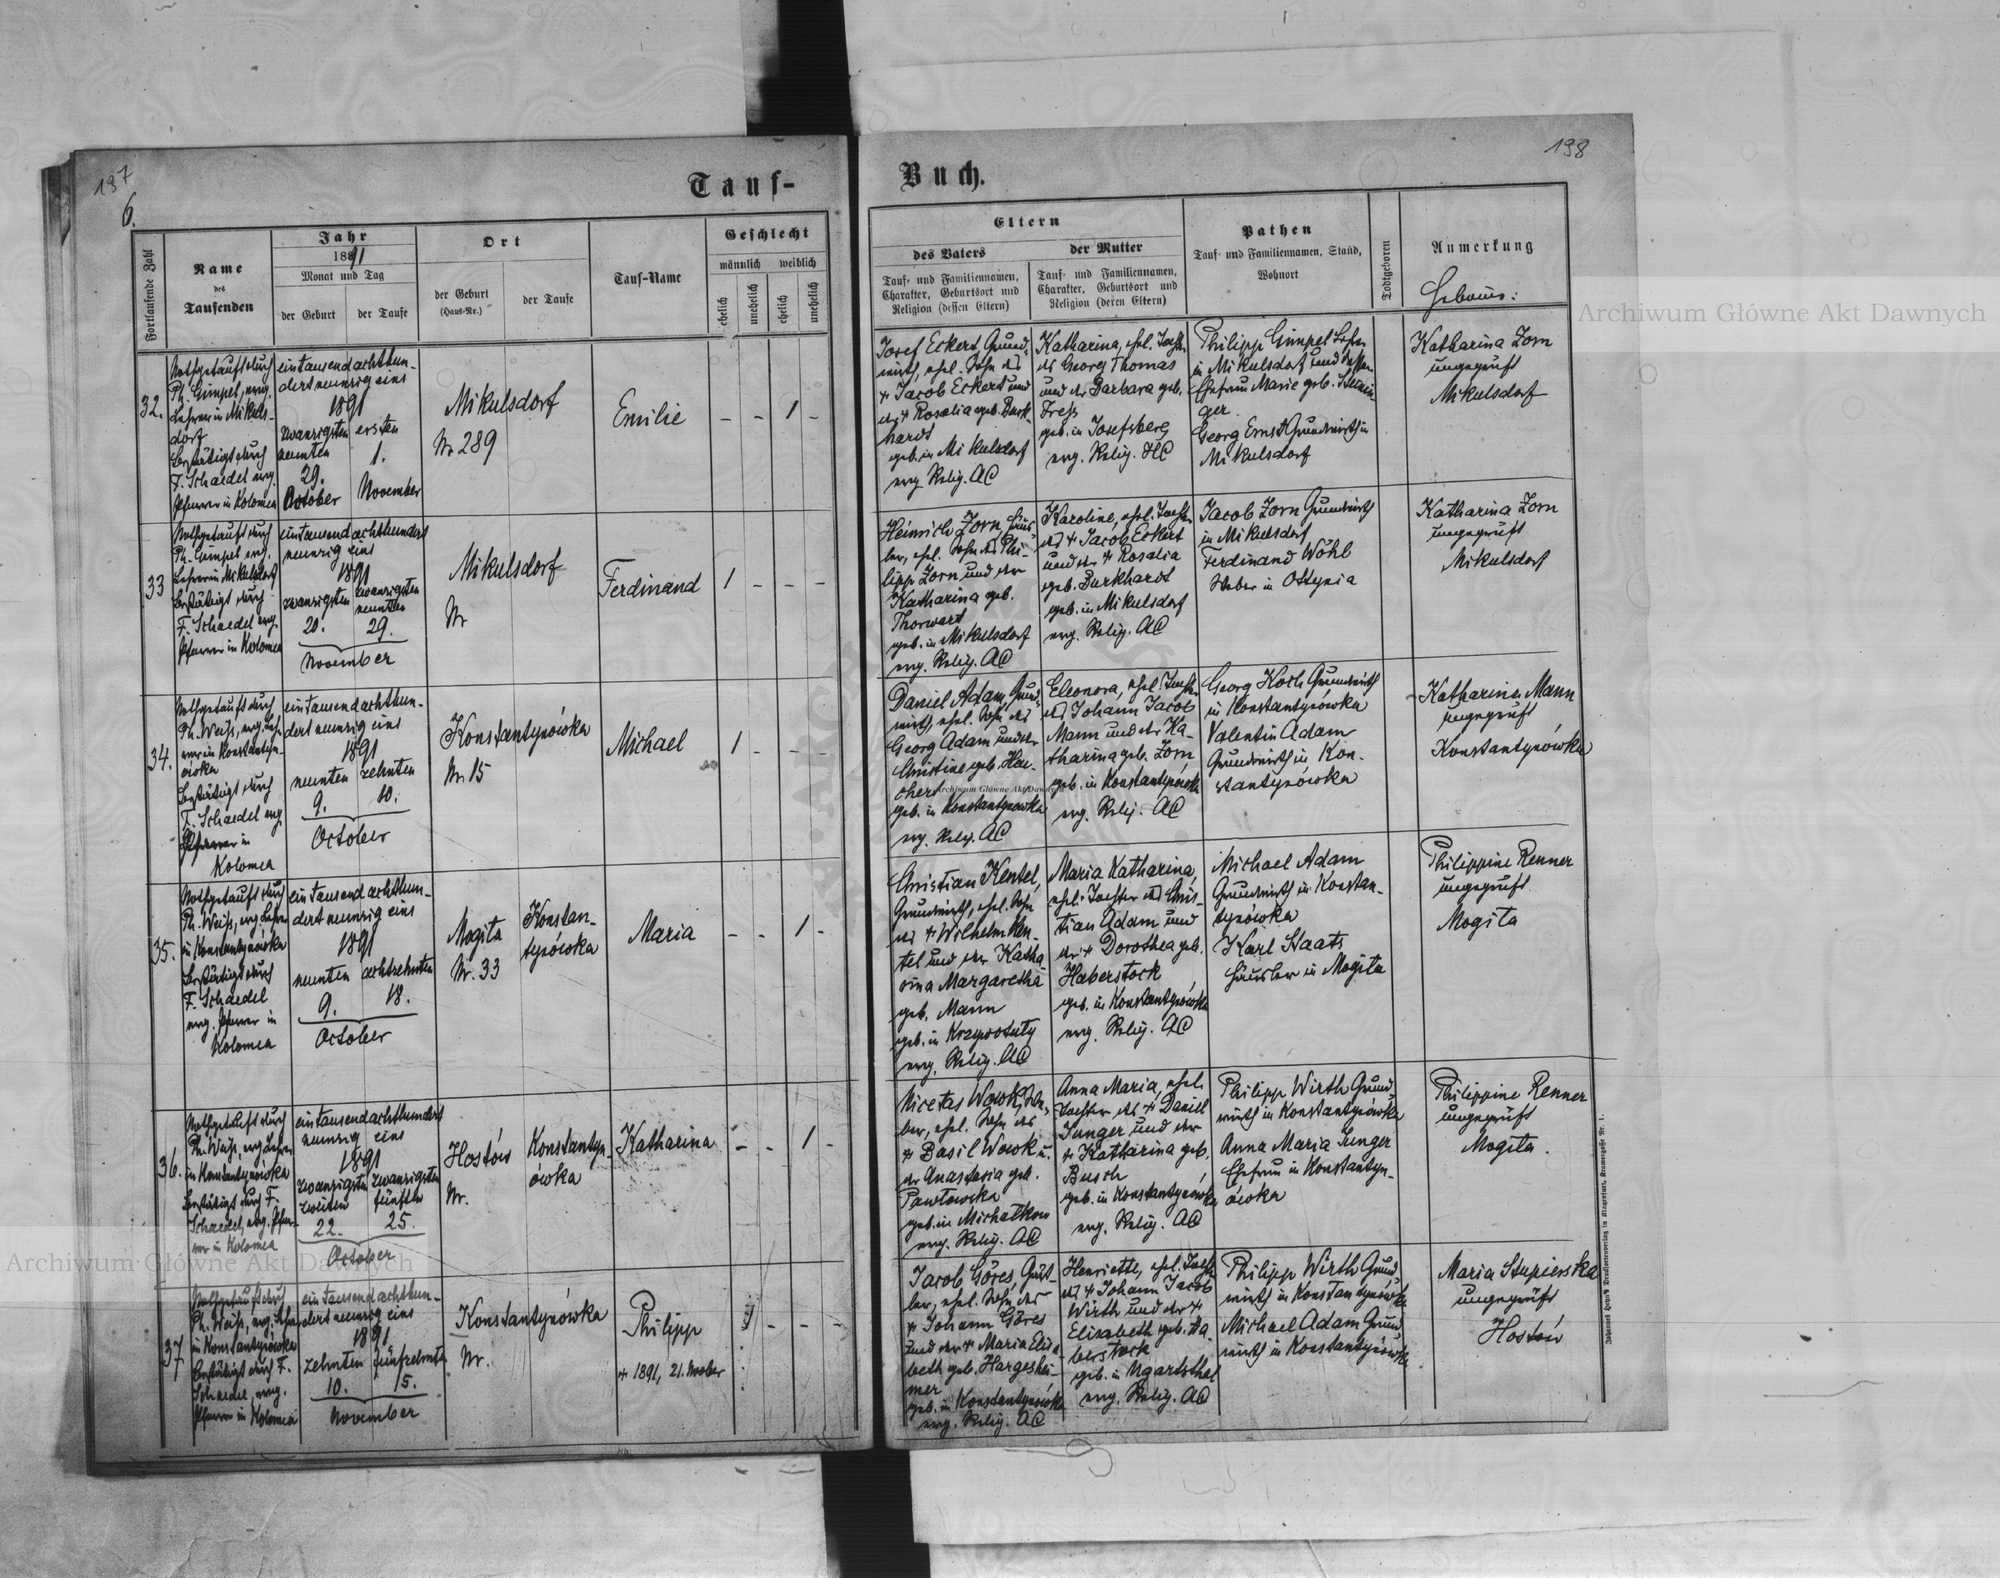 187
6.
Tauf-
Fortlaufende Zahl
Name
des
Taufenden
Jahr
1891
Monat und Tag
der Geburt
der Taufe
Ort
der Geburt
(Haus-Nr.)
der Taufe
Tauf-Name
Geschlecht
männlich
weiblich
ehelich
unehelich
ehelich
unehelich
32.
Nothgetauft durch
Ph. Gimpel, evng.
Lehrer in Mikuls-
dorf
bestätigt durch
F. Schaedel evng.
Pfarrer in Kolomea
eintausendachthun-
dertneunzig eins
1891
zwanzigsten ersten
neunten 1.
29.
October November
Mikulsdorf
Nr 289
Emilie
- - 1 -
33
Nothgetauft durch
Ph. Gimpel evng.
Lehrer in Mikulsdorf
bestätigt durch
F. Schaedel evng.
Pfarrer in Kolomea
eintausendachthundert
neunzig eins
1891
zwanzigsten zwanzigsten
neunten
20. 29.
November
Mikulsdorf
Nr
Ferdinand
1 - - -
34.
Nothgetauft durch
Ph. Weiss, evng. Leh-
rer in Konstantyn-
ówka
bestätigt durch
F. Schaedel evng.
Pfarrer in
Kolomea
eintausendachthun-
dertneunzig eins
1891
neunten zehnten
9. 10.
October
Konstantynówka
Nr. 15
Michael
1 - - -
35.
Nothgetauft durch
Ph. Weiss, evng Lehrer
in Konstantynówka
bestätigt durch
F. Schaedel
evng. Pfarrer in
Kolomea
eintausendachthun-
dertneunzig eins
1891
neunten achtzehnten
9. 18.
October
Mogiła
Nr. 33
Konstan-
tynówka
Maria
- - 1 -
36.
Nothgetauft durch
Ph. Weiss, evng Lehrer
in Konstantynówka
bestätigt durch F.
Schaedel, evng. Pfar-
rer in Kolomea
eintausendachthundert
neunzig eins
1891
zwanzigsten zwanzigsten
zweiten fünften
22. 25.
October
Hostów
Nr.
Konstantyn-
ówka
Katharina
- - 1 -
37
Nothgetauft durch
Ph. Weiss, evng. Lehrer
in Konstantynówka
bestätigt durch F.
Schaedel, evng.
Pfarrer in Kolomea
eintausendachthun-
dertneunzig eins
1891
zehnten fünfzehnten
10. 15.
November
Konstantynówka
Nr.
Philipp
+ 1891, 21. Novber
1 - - -
198
Buch.
Eltern
des Vaters
Tauf- und Familiennamen,
Charakter, Geburtsort und
Religion (dessen Eltern)
der Mutter
Tauf- und Familiennamen,
Charakter, Geburtsort und
Religion (deren Eltern)
Pathen
Tauf- und Familiennamen, Stand,
Wohnort
Todtgeboren
Anmerkung
Hebamme:
Josef Eckert Grund-
wirth, ehel. Sohn des
+ Jacob Eckert und
der + Rosalia geb. Burk-
hardt
geb. in Mikulsdorf
evng. Relig. AC
Katharina, ehel. Tochter
des Georg Thomas
und der Barbara geb.
Fress
geb. in Josefsberg
evng. Relig. HC
Philipp Gimpel Lehrer
in Mikulsdorf und dessen
Ehefrau Marie geb.
Georg Ernst Grundwirth in
Mikulsdorf
Katharina Zorn
ungeprüft
Mikulsdorf
Heinrich Zorn Häus-
ler, ehel. Sohn des Phi-
lipp Zorn und der
Katharina geb.
Thorwart
geb. in Mikulsdorf
evng. Relig. AC
Karoline, ehel. Tochter
des + Jacob Eckert
und der + Rosalia
geb. Burkhardt
geb. in Mikulsdorf
evng. Relig. AC
Jacob Zorn Grundwirth
in Mikulsdorf
Ferdinand Wöhl
Weber in Ottynia
Katharina Zorn
ungeprüft
Mikulsdorf
Daniel Adam Grund-
wirth, ehel. Sohn des
Georg Adam und der
Christine geb.
geb. in Konstantynówka
evng. Relig. AC
Eleonora, ehel. Tochter
des Johann Jacob
Mann und der Ka-
tharina geb. Zorn
geb. in Konstantynówka
evng. Relig. AC
Georg Koch Grundwirth
in Konstantynówka
Valentin Adam
Grundwirth in Kon-
stantynówka
Katharina Mann
ungeprüft
Konstantynówka
Christian Kentel,
Grundwirth, ehel. Sohn
des + Wilhelm Ken-
tel und der Katha-
rina Margaretha
geb. Mann
geb. in
evng. Relig. AC
Maria Katharina,
ehel. Tochter des Chris-
tian Adam und
der + Dorothea geb.
Haberstock
geb. in Konstantynówka
evng. Relig. AC
Michael Adam
Grundwirth in Konstan-
tynówka
Karl Staats
Häusler in Mogiła
Philippine Renner
ungeprüft
Mogiła
Nicetas Wowk, We-
ber, ehel. Sohn des
+ Basil Wowk u.
der Anastasia geb.
Pawłowska
geb. in Michałków
evng. Relig. AC
Anna Maria, ehel.
Tochter des + Daniel
Junger und der
+ Katharina geb.
Busch
geb. in Konstantynówka
evng. Relig. AC
Philipp Wirth Grund-
wirth in Konstantynówka
Anna Maria Junger
Ehefrau in Konstantyn-
ówka
Philippine Renner
ungeprüft
Mogiła.
Jacob Göres, Häus-
ler, ehel. Sohn des
+ Johann Göres
und der + Maria Elisa-
beth geb. Hargeshei-
mer
geb. in Konstantynówka
evng. Relig. AC
Henriette, ehel. Tochter
des + Johann Jacob
Wirth und der +
Elisabeth geb. Ha-
berstock
geb. in Ugartsthal
evng. Relig. AC
Philipp Wirth Grund-
wirth in Konstantynówka
Michael Adam Grund-
wirth in Konstantynówka
Maria Stupierska
ungeprüft
Hostów
Archiwum Główne Akt Dawnych
Archiwum Główne Akt Dawnych
Archiwum Główne Akt Dawnych